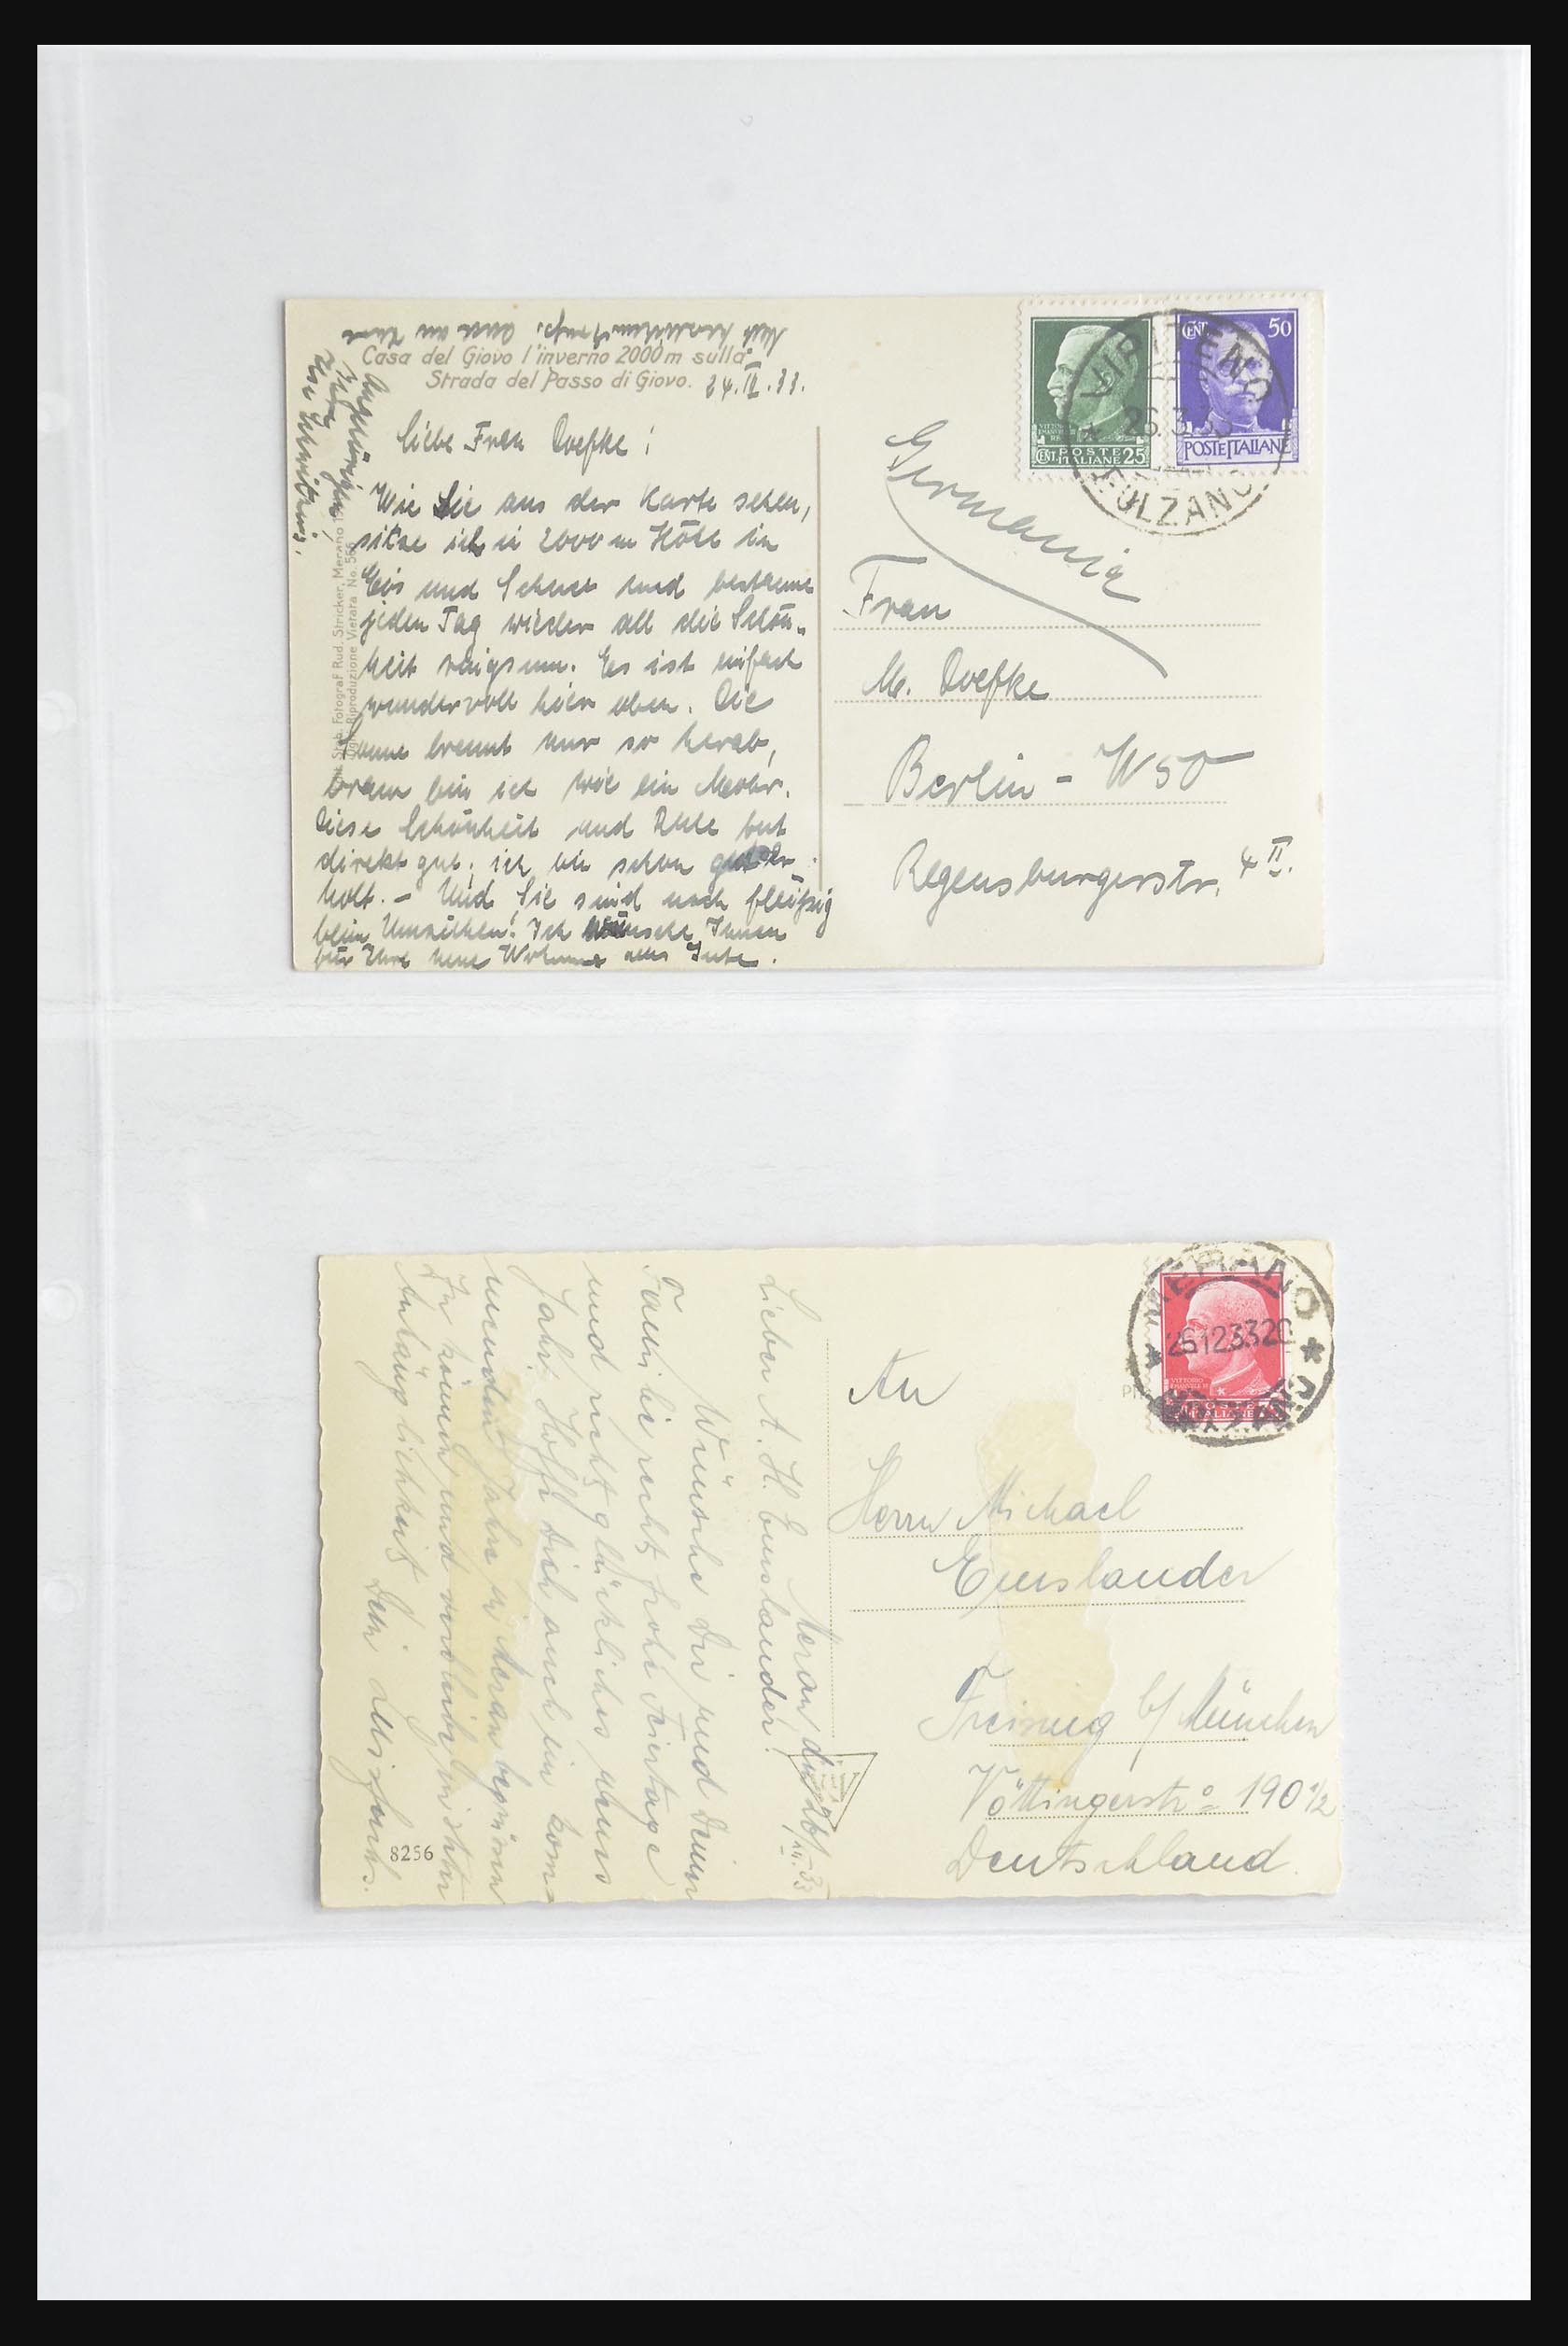 Casa del Giovo l'inverno 2000 m sulla
Strada del Passo di Giovo. 24.III.33.
Liebe Frau Doefke!
Wie Sie aus der Karte sehen,
sitze ich in 2000 m Höhe in
Eis und Schnee und bestaune
jeden Tag wieder all die Schön-
heit ringsum. Es ist einfach
wundervoll hier oben. Die
Sonne brennt nur so herab,
braun bin ich wie ein Mohr.
Diese Schönheit und Ruhe tut
direkt gut, ich bin schon gut er-
holt. – Und Sie sind noch fleißig
beim Umziehen! Ich wünsche Ihnen
für Ihre neue Wohnung alles Gute.
Angehörigen
Ihre
Fotograf Rud. Stricker, Merano
Riproduzione Vietata No. 566
CENT. POSTE ITALIANE 25
CENT. 50
POSTE ITALIANE
VIPITENO
26.3.33
BOLZANO
Germania
Frau
M. Doefke
Berlin - W 50
Regensburgerstr. 4 II.
MERANO
26.12.33.20
VITTORIO
POSTE
ITALIANE
An
Herrn Michael
Emslander
Freising b/ München
Vöttingerstr. 190 1/2
Deutschland.
Meran den 26/12.33
Lieber A. H. Emslander!
Wünsche Dir und Deiner
Familie recht frohe Feiertage
und recht glückliches neues
Jahr. Hoffe Dich auch im kom-
menden Jahre in Meran begrüssen
zu können und verbleibe in steter
Anhänglichkeit Dein
8256